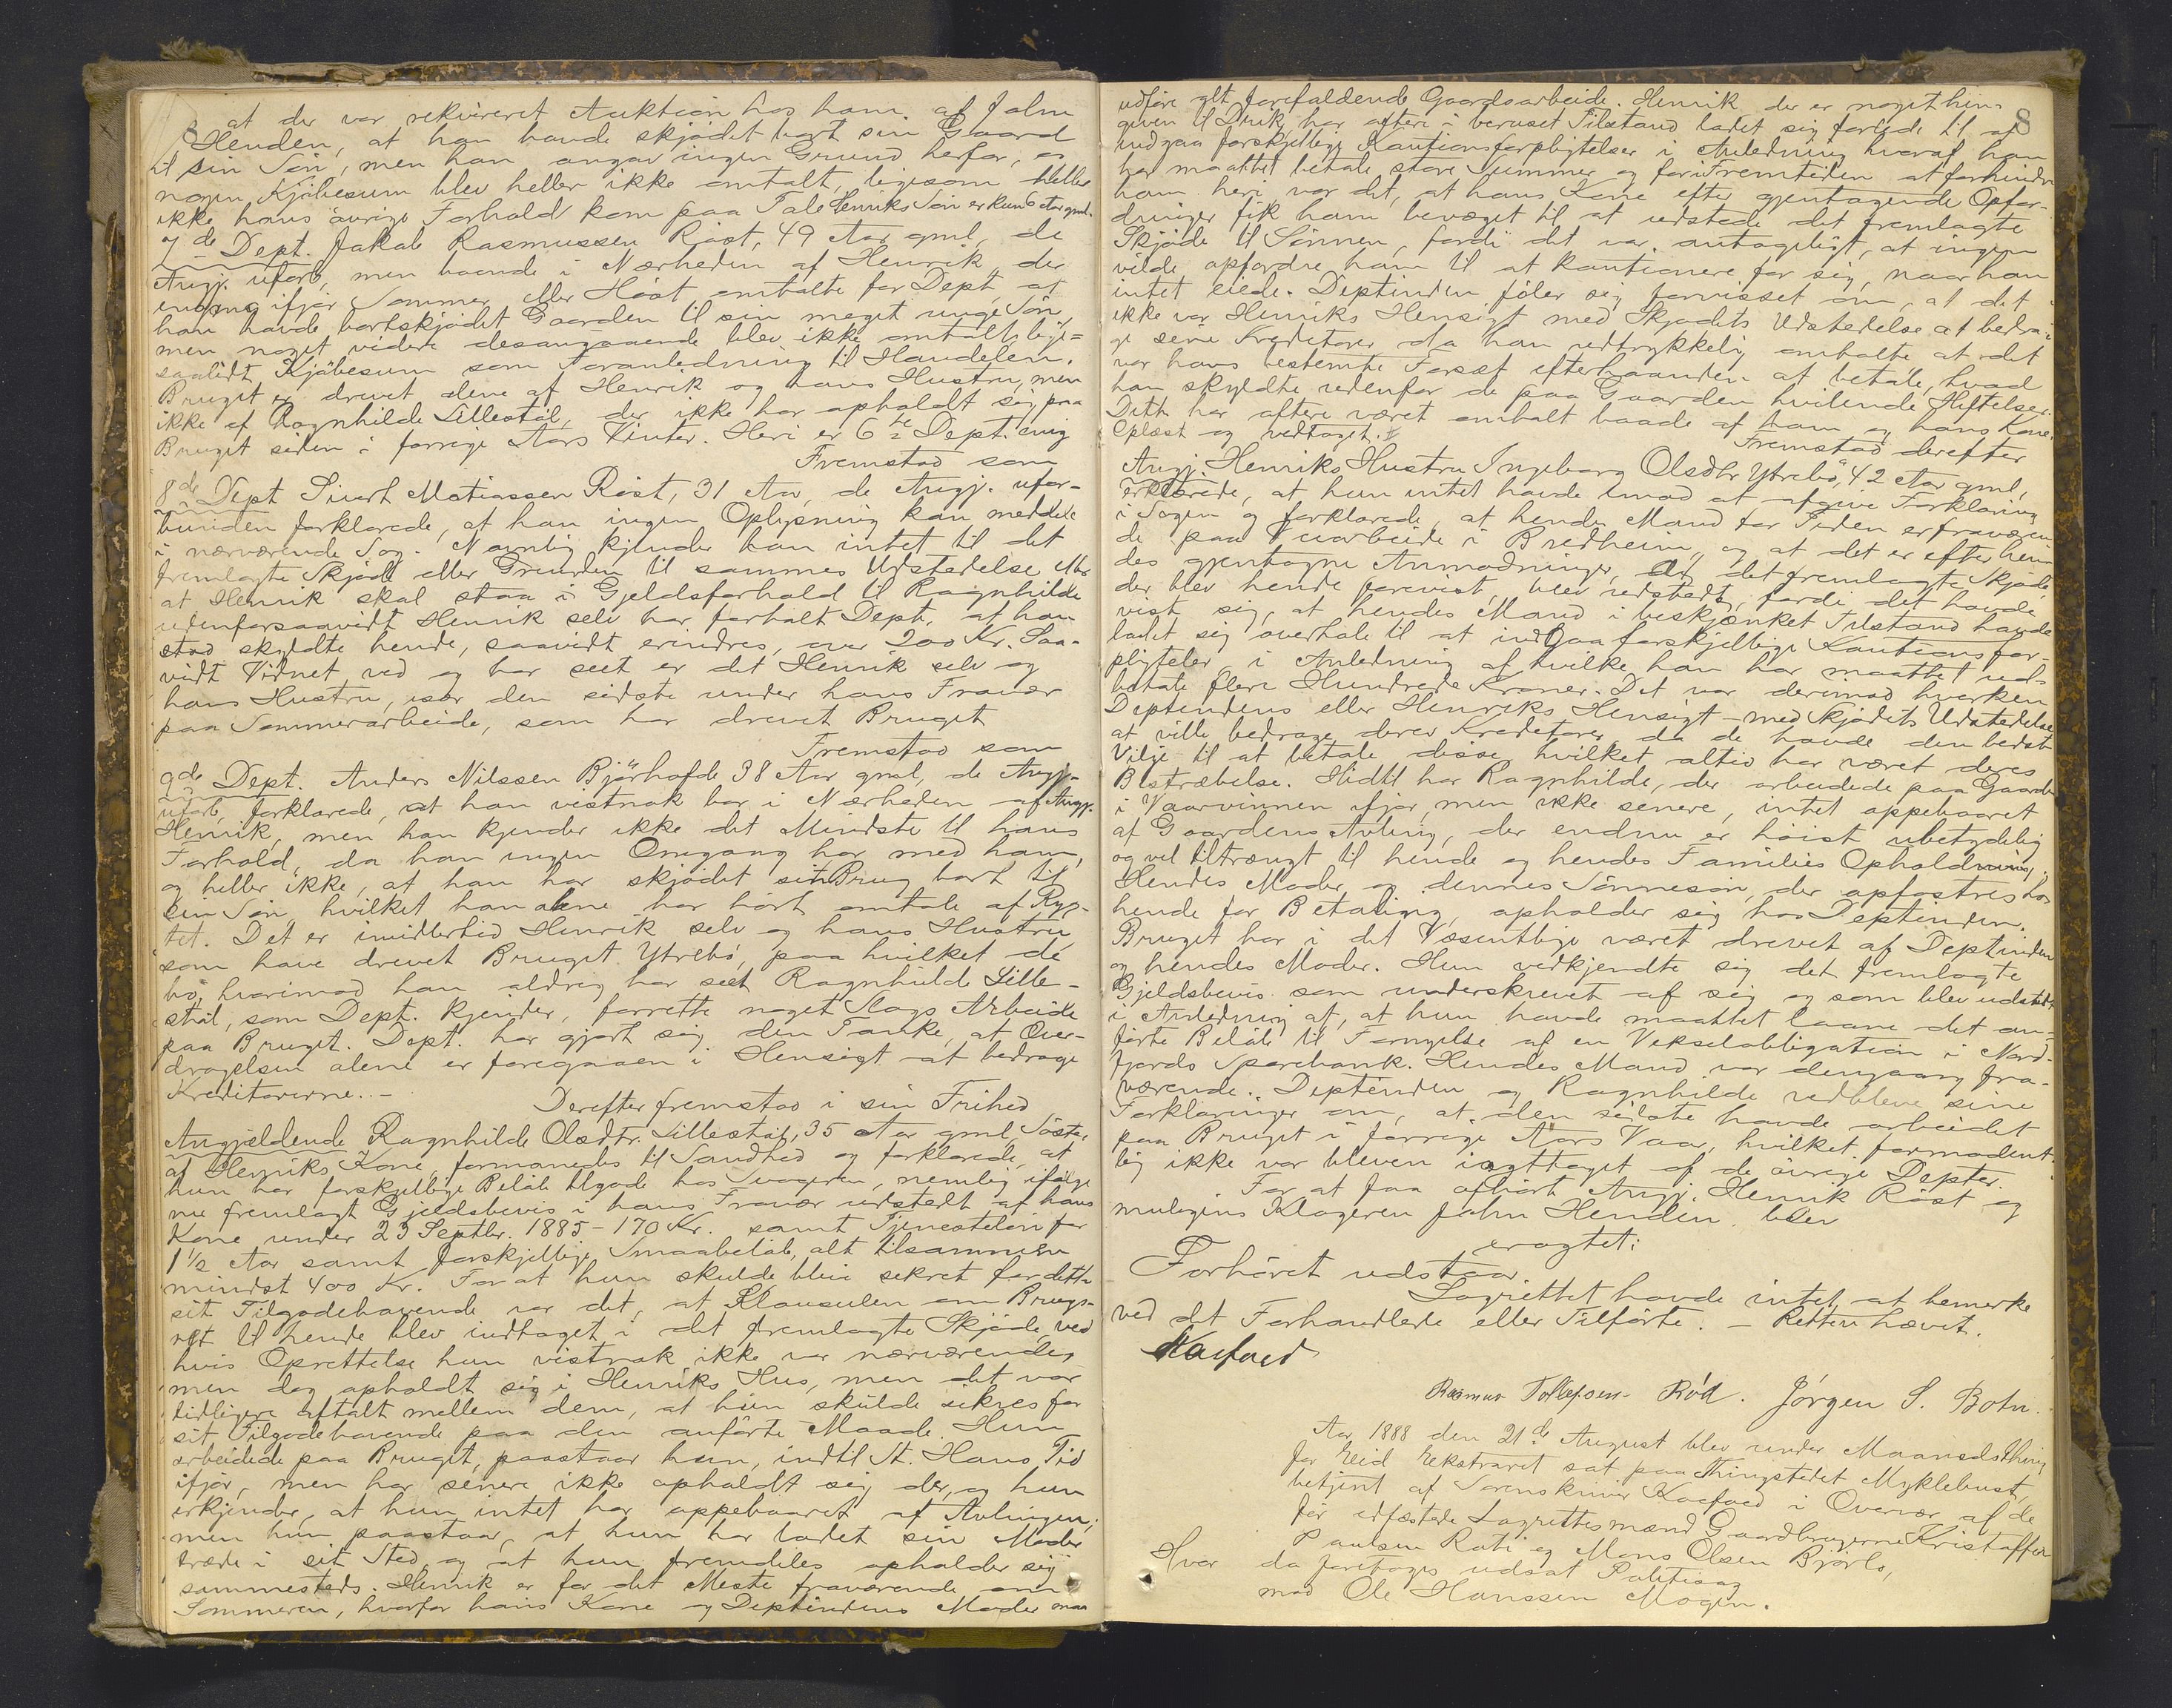 at der var rekvireret Auktion hos ham af John
Henden, at han havde skjödet bort sin Gaard
til sin Sön, men han angav ingen Grund herfor, og
nogen Kjöbesum blev heller ikke omtalt, ligesom heller
ikke hans övrige Forhold kom paa Tale. Henriks Sön er kun 6 Aar gml.
7de Dept. Jakob Rasmussen Röst, 49 Aar gml, de
Angj. uforb, men boende i Nærheden af Henrik, der
engang ifjor Sommer eller Höst omtalte for Dept, at
han havde bortskjödet Gaarden til sin meget unge Sön,
men noget videre desangaaende blev ikke omtalt, lige=
saalidt Kjöbesum som Foranledning til Handelen.
Bruget er drevet alene af Henrik og hans Hustru, men
ikke af Ragnhilde Lillestöl, der ikke har opholdt sig paa
Bruget siden i forrige Aars Vinter. Heri er 6te Dept. enig
Fremstod som
8de Dept Sivert Matiassen Röst, 31 Aar, de Angj. ufor-
bunden forklarede, at han ingen Oplysning kan meddele
i nærværende Sag. Navnlig kjender han intet til det
fremlagte Skjöde eller Grunden til sammes Udstedelse eller
at Henrik skal staa i Gjeldsforhold til Ragnhilde
udenforsaavidt Henrik selv har fortalt Dept. at han
stod skyldte hende, saavidt erindres, over 200 Kr. Saa-
vidt Vidnet ved og har seet er det Henrik selv og
hans Hustru, især den sidste under hans Fravær
paa Sommerarbeide, som har drevet Bruget
Fremstod som
9de Dept. Anders Nilssen Björhofde 38 Aar gml, de Angj.
uforb, forklarede, at han vistnok bor i Nærheden af Angj.
Henrik, men han kjender ikke det Mindste til hans
Forhold, da han ingen Omgang har med ham,
og heller ikke, at han har skjödet sit Brug bort til
sin Sön hvilket han alene har hört omtale af Ryg-
tet. Det er imidlertid Henrik selv og hans Hustru
som have drevet Bruget Ytrebö, paa hvilket de
bo, hvorimod han aldrig har seet Ragnhilde Lille-
stöl, som Dept. kjender, forrette noget Slags Arbeide
paa Bruget. Dept. har gjort sig den Tanke, at Over-
dragelsen alene er foregaaen i Hensigt at bedrage
Kreditorerne. -
Derefter fremstod i sin Frihed
Angjældende Ragnhilde Olsdtr. Lillestöl, 35 Aar gml, Söster
af Henriks Kone, formanedes til Sandhed og forklarede, at
hun har forskjellige Belöb tilgode hos Svogeren, nemlig ifölge
nu fremlagt Gjeldsbevis i hans Fravær udstedt af hans
Kone under 23 Septbr. 1885 - 170 Kr. samt Tjenestelön for
1 1/2 Aar samt forskjellige Smaabelöb, alt tilsammen
mindst 400 Kr. For at hun skulde blive sikret for dette
sit Tilgodehavende var det, at Klausulen om Brugs-
ret til hende blev indtaget i det fremlagte Skjöde, ved
hvis Oprettelse hun vistnok ikke var nærværende,
men dog opholdt sig i Henriks Hus, men det var
tidligere aftalt mellem dem, at hun skulde sikres for
sit Tilgodehavende paa den anförte Maade. Hun
arbeidede paa Bruget, paastaar hun, indtil St. Hans Tid
ifjor, men har senere ikke opholdt sig der, og hun
erkjender, at hun intet har oppebaaret af Avlingen;
men hun paastaar, at hun har ladet sin Moder
træde i sit Sted, og at hun fremdeles opholder sig
sammesteds. Henrik er for det Meste fraværende om
Sommeren, hvorfor hans Kone og Deptindens Moder maa
8
udföre alt forefaldende Gaardsarbeide. Henrik der er noget hen-
given til Drik, har oftere i beruset Tilstand ladet sig forlede til at
indgaa forskjellige Kautionsforpligtelser i Anledning hvoraf han
har maattet betale store Summer og for i Fremtiden at forhindre
ham heri var det, at hans Kone efter gjentagende Opfor-
dringer fik ham bevæget til at udstede det fremlagte
Skjöde til Sönnen, fordi det var antageligt, at ingen
vilde opfordre ham til at kautionere for sig, naar han
intet eiede. Deptinden föler sig forvisset om, at det
ikke var Henriks Hensigt med Skjödets Udstedelse at bedra-
ge sine Kreditorer da han udtrykkelig omtalte at det
var hans bestemte Forsæt efterhaanden at betale, hvad
han skyldte udenfor de paa Gaarden hvilende Heftelser.
Dette har oftere været omtalt baade af ham og hans Kone.
Oplæst og vedtaget.
Fremstod derefter
Angj. Henriks Hustru Ingeborg Olsdtr Ytrebö, 42 Aar gml,
erklærede, at hun intet havde imod at afgive Forklaring
i Sagen og forklarede, at hendes Mand for Tiden er fraværen-
de paa Veiarbeide i Bredheim, og at det er efter hen-
des gjentagne Anmodninger, at det fremlagte Skjöde,
der blev hende forevist, blev udstedt, fordi det havde
vist sig, at hendes Mand i beskjænket Tilstand havde
ladet sig overtale til at indgaa forskjellige Kautionsfor-
pligtelser, i Anledning af hvilke han har maattet ud-
betale flere Hundrede Kroner. Det var derimod hverken
Deptindens eller Henriks Hensigt med Skjödets Udstedelse
at ville bedrage deres Kreditorer, da de havde den bedste
Vilje til at betale disse hvilket altid har været deres
Bestræbelse. Hidtil har Ragnhilde, der arbeidede paa Gaarden
i Vaarvinnen ifjor, men ikke senere, intet oppebaaret
af Gaardens Avling, der endnu er höist ubetydelig
og vel tiltrængt til hende og hendes Families Ophold
Hendes Moder og dennes Sönnesön, der opfostres hos
hende for Betaling, opholder sig hos Deptinden.
Bruget har i det Væsentlige været drevet af Deptinden
og hendes Moder. Hun vedkjendte sig det fremlagte
Gjeldsbevis som underskrevet af sig og som blev udstedt
i Anledning af, at hun havde maattet laane det an-
förte Belöb til Fornyelse af en Vekselobligation i Nord-
fjords Sparebank. Hendes Mand var dengang fra-
værende. Deptinden og Ragnhilde vedbleve sine
Forklaringer om, at den sidste havde arbeidet
paa Bruget i forrige Aars Vaar, hvilket formodent-
lig ikke var bleven iagttaget af de övrige Depter.
For at faa afhört Angj. Henrik Röst og
muligens Klageren John Henden blev
eragtet:
Forhöret udstaar.
Lagrettet havde intet at bemerke
ved det Forhandlede eller Tilförte. - Retten hævet.
Koefoed
Rasmus Tollefsen Röd. Jörgen S. Botn.
Aar 1888 den 21de August blev under Maanedsthing
for Eid Ekstraret sat paa Thingstedet Myklebust,
betjent af Sorenskriver Koefoed i Overvær af de
för edfæstede Lagrettesmænd Gaardbrugerne Kristoffer
Paulsen Roti og Mons Olsen Bjorlo,
Hvor da foretoges udsat Politisag
mod Ole Hanssen Mogen.